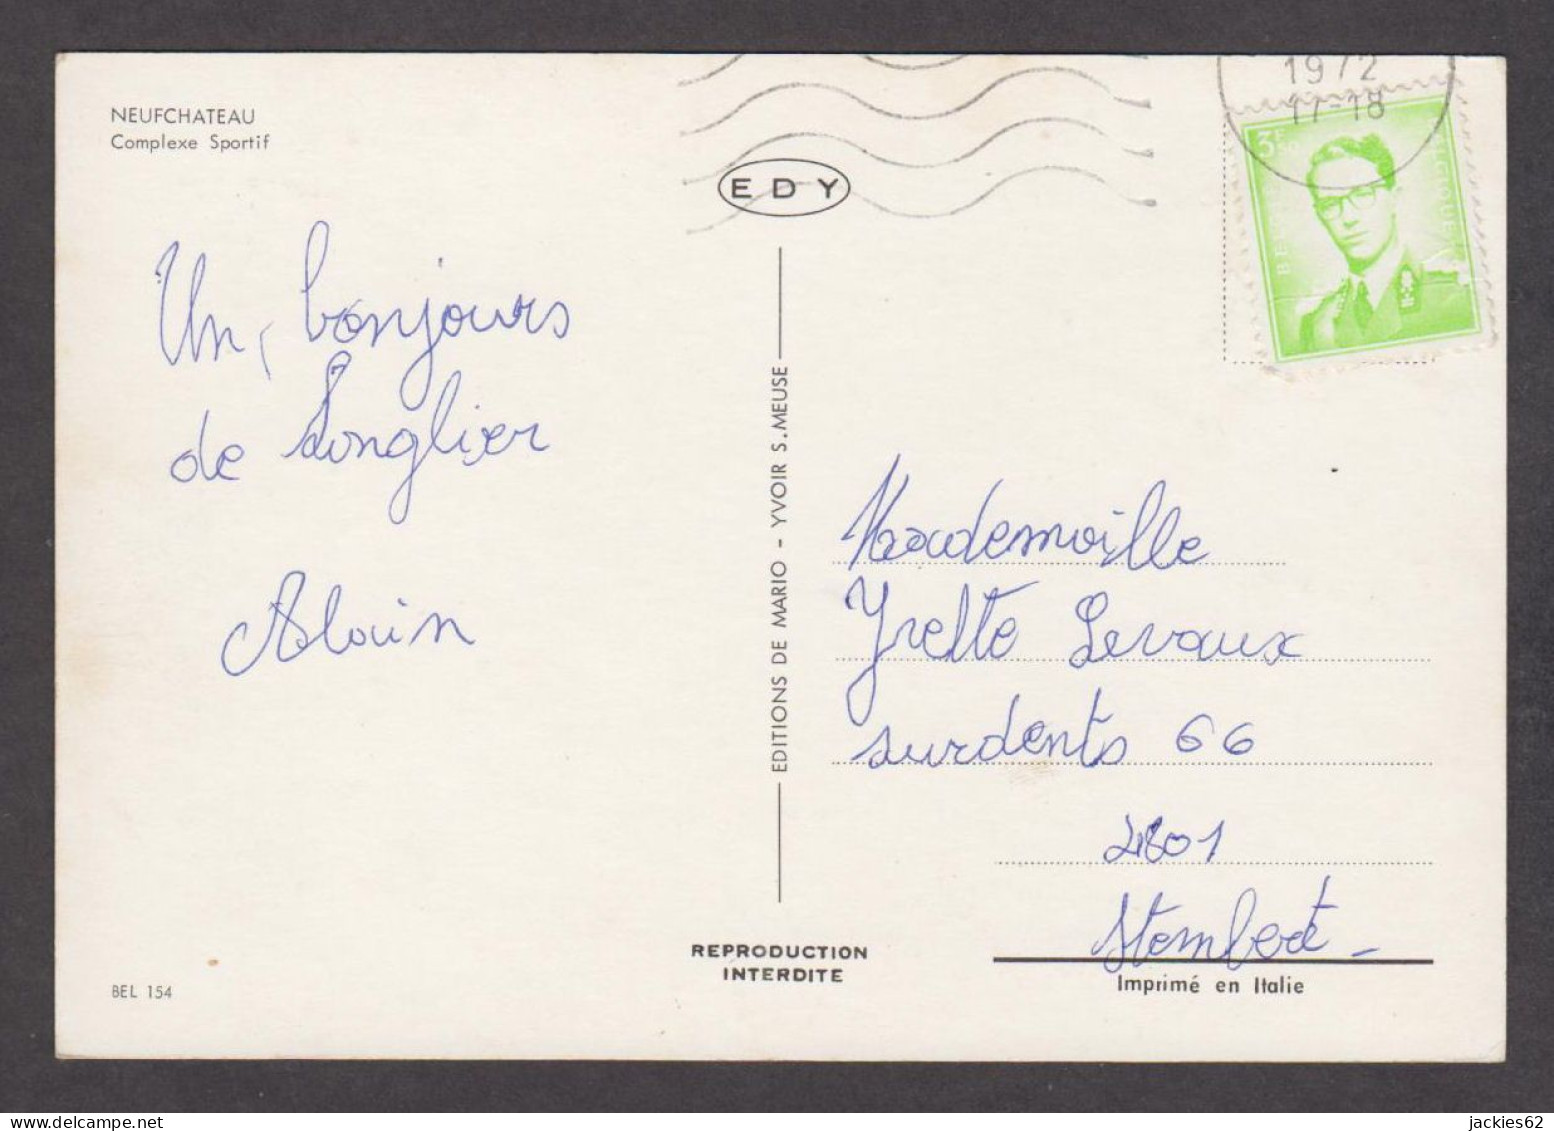 NEUFCHATEAU
Complexe Sportif
1972
17-18
3F
BELGIQUE
EDY
Un, bonjours
de Longlier
Alain
EDITIONS DE MARIO - YVOIR S.MEUSE
Mademoille
Yvette Levaux
surdents 66
4801
Stembert -
REPRODUCTION
INTERDITE
Imprimé en Italie
BEL 154
jackies62